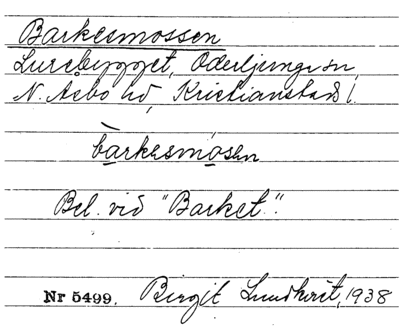 Barkesmossen
Lurebygget, Oderljunga sn,
N. Åsbo hd, Kristianstads l.
bàrkesmosen
Bel. vid "Barket".
Nr 5499. Birgit Lundkvist, 1938